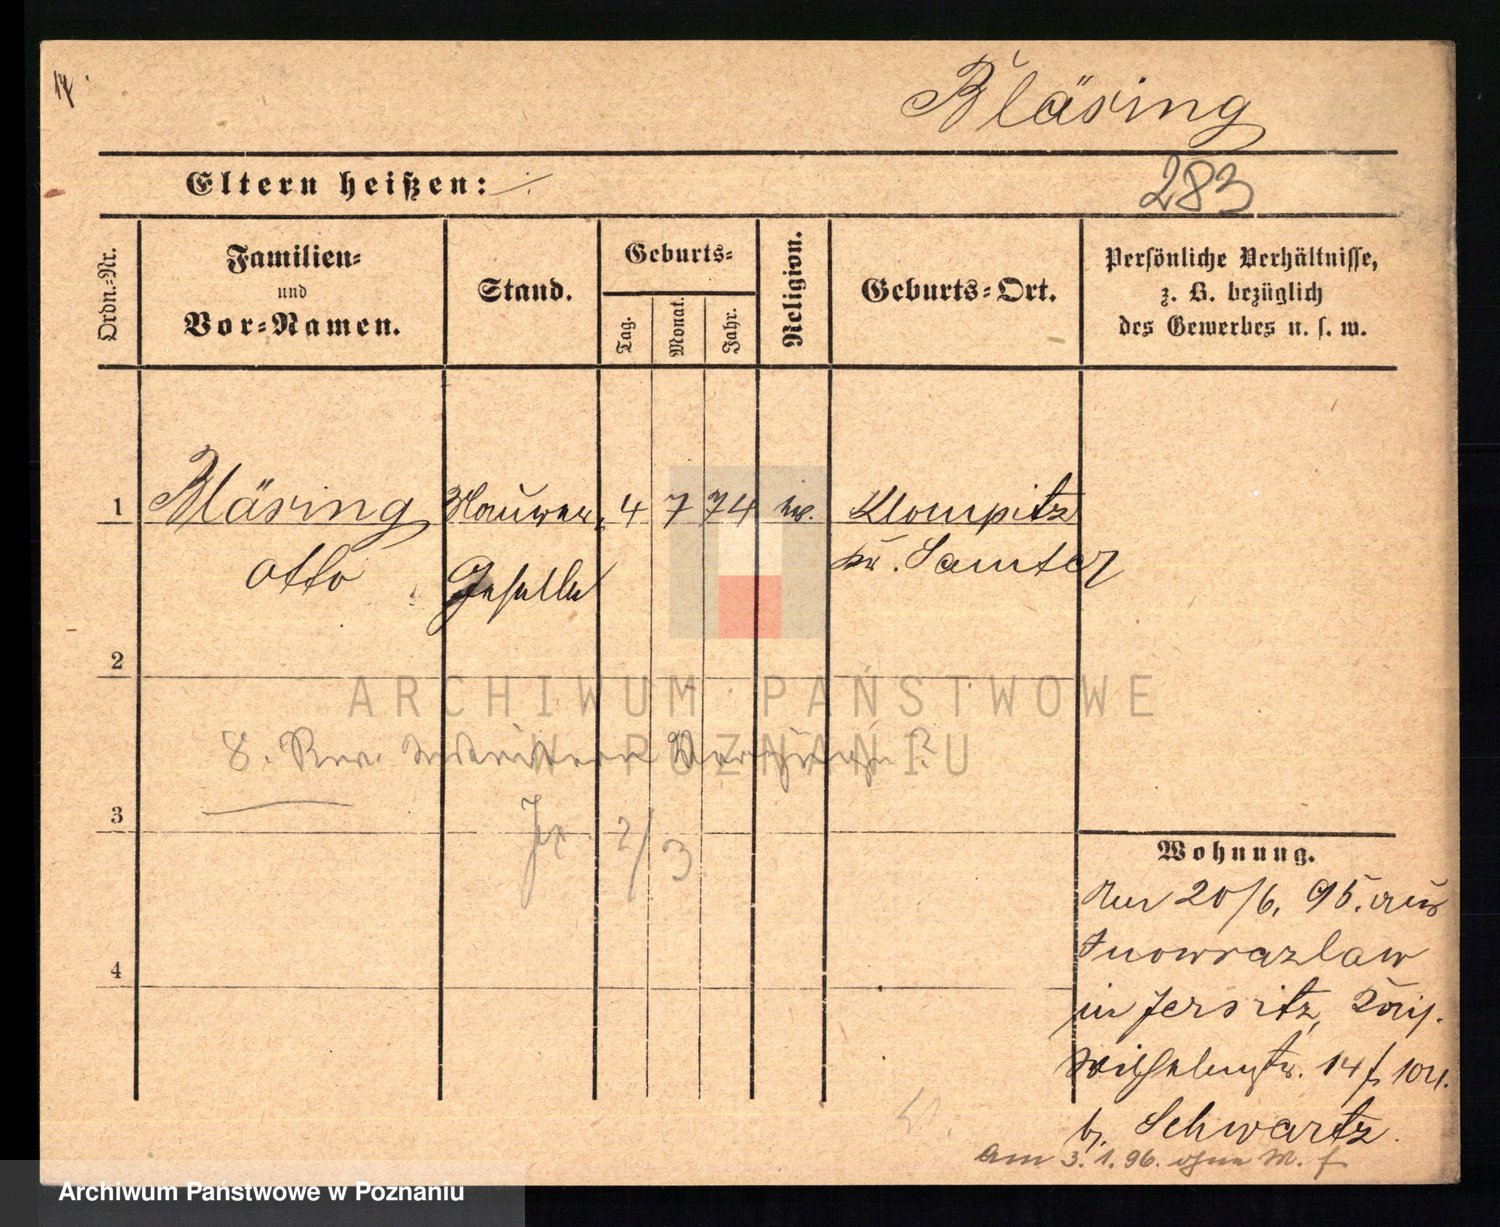 14
Bläsing
Eltern heißen:
283
Ordn.-Nr.
Familien-
und
Vor-Namen.
Stand.
Geburts-
Tag.
Monat.
Jahr.
Religion.
Geburts-Ort.
Persönliche Verhältnisse,
z. B. bezüglich
des Gewerbes u. s. w.
1 Bläsing Maurer 4 7 74 ev. Klompitz
Otto Geselle Kr. Samter
2
ARCHIWUM PAŃSTWOWE
W POZNANIU
8. Rev.
3
2/3
Wohnung.
Am 20/6. 95. aus
4
Inowrazlaw
in Jersitz, Kais.
Wilhelmstr. 14
b. Schwartz.
am 3.1.96. ohne M. f
Archiwum Państwowe w Poznaniu